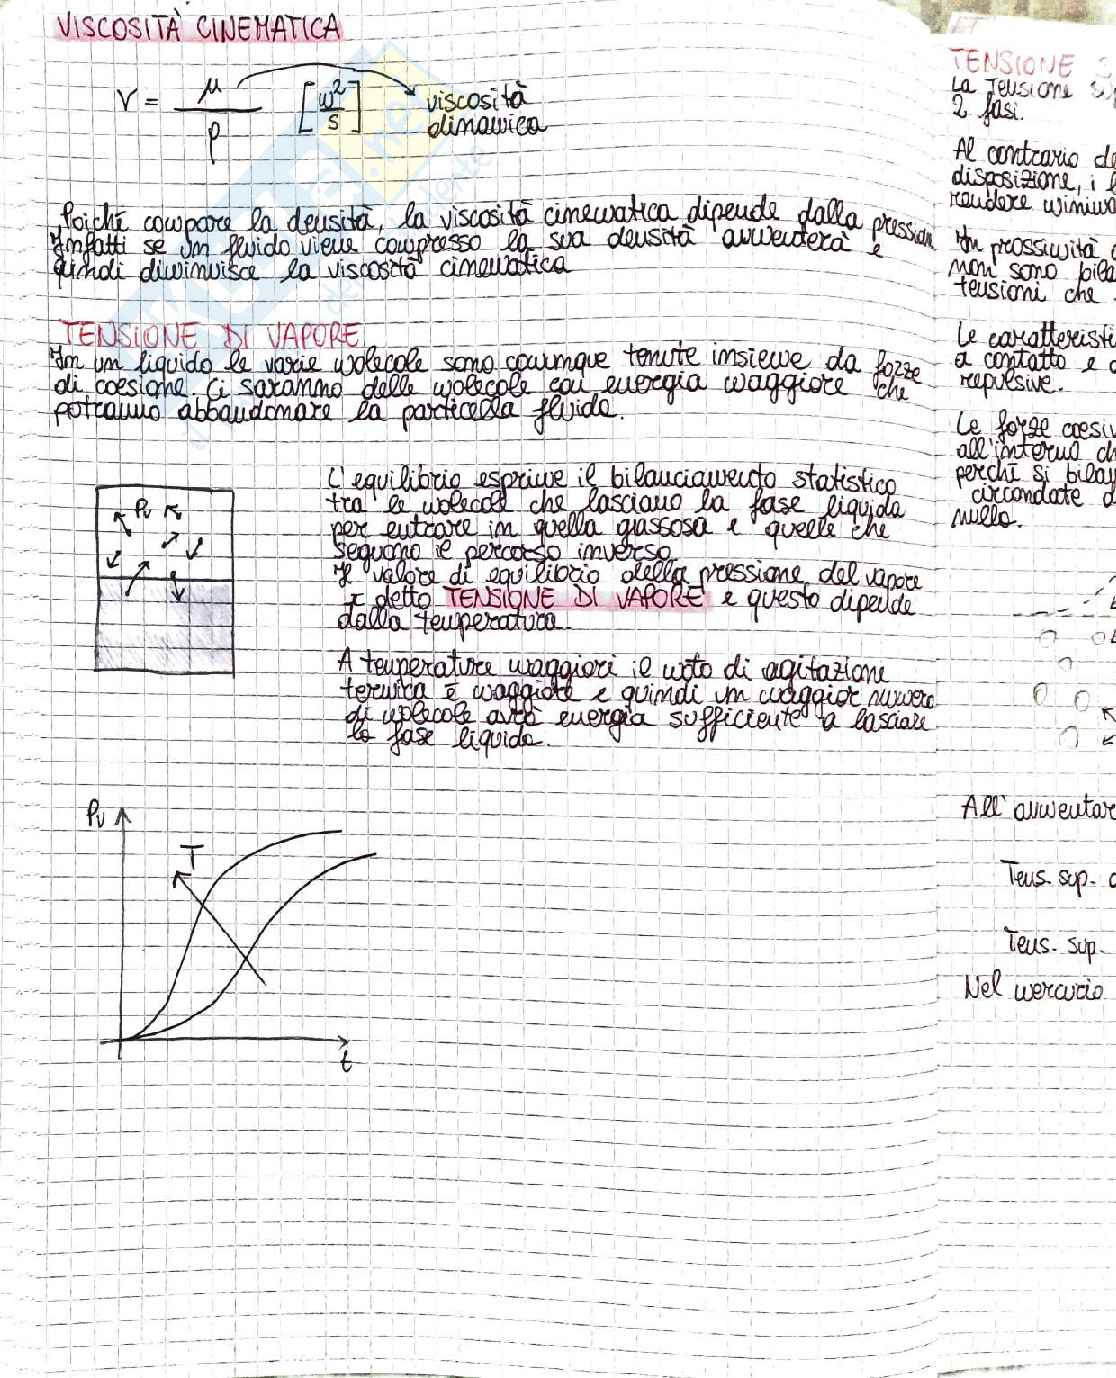 VISCOSITÀ CINEMATICA
ν = μ / ρ [m²/s] viscosità
dinamica
Poiché compare la densità, la viscosità cinematica dipende dalla pression
Infatti se un fluido viene compresso la sua densità aumenterà e
quindi diminuisce la viscosità cinematica
TENSIONE DI VAPORE
In un liquido le varie molecole sono comunque tenute insieme da forze
di coesione. Ci saranno delle molecole con energia maggiore che
potranno abbandonare la particella fluida.
L'equilibrio esprime il bilanciamento statistico
tra le molecole che lasciano la fase liquida
per entrare in quella gassosa e quelle che
seguono il percorso inverso.
Il valore di equilibrio della pressione del vapore
è detto TENSIONE DI VAPORE e questo dipende
dalla temperatura.
Pv
A temperature maggiori il moto di agitazione
termica è maggiore e quindi un maggior numero
di molecole avrà energia sufficiente a lasciare
la fase liquida.
Pv
T
t
TENSIONE
La Tensione
2 fasi.
Al contrario
disposizione, i
rendere
In prossimità
non sono
tensioni che
Le
a contatto e
repulsive.
Le forze
all'interno
perché si
circondate
nullo.
All'
Tens. sup.
Tens. sup.
Nel mercurio